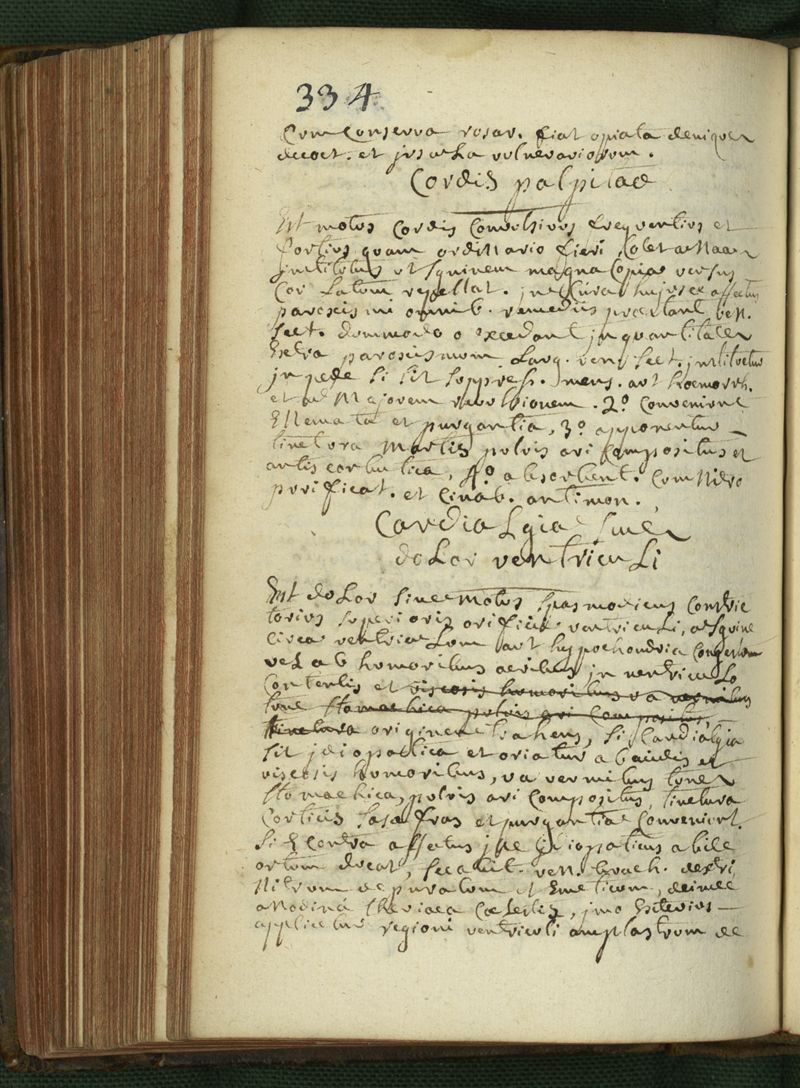 334
Cum Conserva rosar. fiat opiata denique
decoct. et jusæla vulnerariorum.
Cordis palpitaõ
Est motus Cordis Convulsivus frequentius et
fortius quam ordinario fieri solet a natura
institutus ut sanguinem magna Copia versus
Cor latum repellat. in Cura hujusce affectus
paroxismi omnib. remediis præstant ven.
sect. dummodo o excedant in quantitate
Extra paroxismum larg. ven. sect. instituetur
in pede si sit suppress. mens. aut hoemorrh.
et ad Majorem revulsionem. 2º Conveniunt
Enemata et purgantia, 3º apponentur
tinctura martis pulvis ari Compositus et
antiscorbutica, 4º absorbent. Cum Nitro
purificat. et Cinab. antimon.
Cardialgia sive
dolor ventriculi
Est dolor sive motus spasmodicus Constric
torius superioris orificii ventriculi, a sanguine
Circa ventriculum aut hypochondria Congestum
vel ab humoribus acribus in ventriculo
Contentis et viscosis humoribus va vermibus
tunc stomachica pulvis ari Compositus,
tinctura originem trahens, si Cardialgia
sit idiopatica et oriatur ab acidis et
viscosis humoribus, va vermibus tunc
stomachica, pulvis ari Compositus, tinctura
Corticis sasafras et purgantia Conveniunt.
Si e Contra affectus iste idiopaticus a bile
ortum ducat, secabit. ven. brach. dextri
Nitrum depuratum et Emeticum, deinde
anodina theriaca Coelestis, imo Exterius
applicetur regioni ventriculi amplastrum de